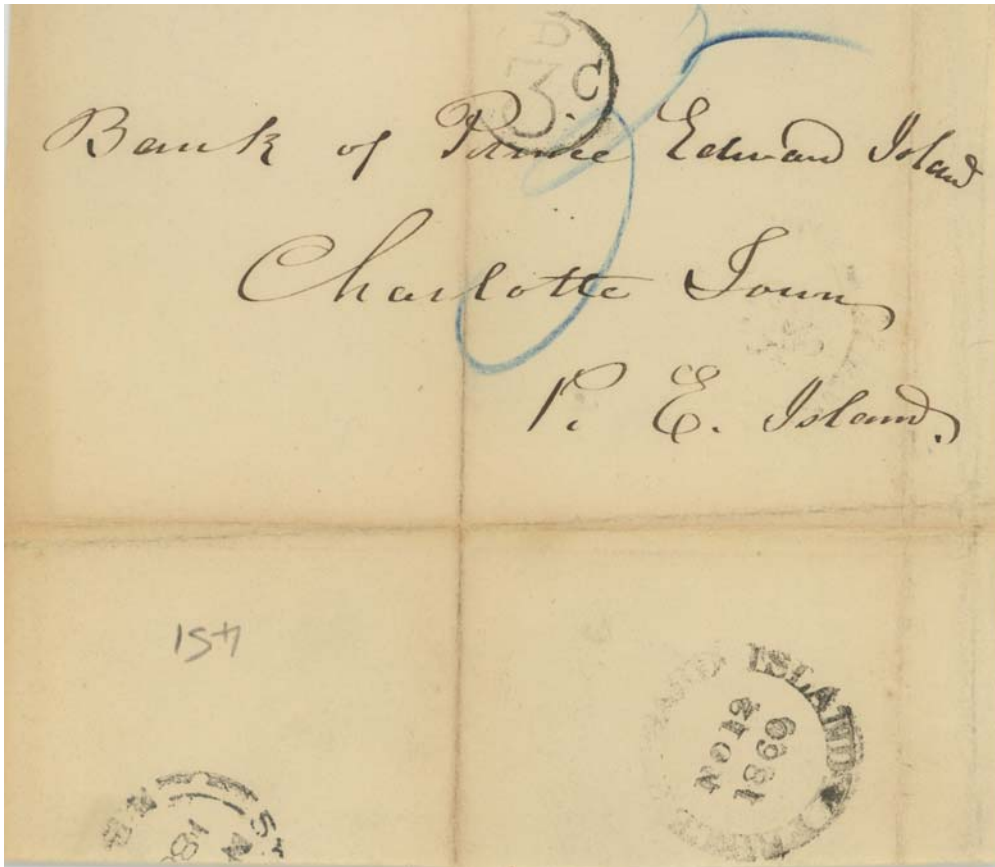 3 c
Bank of Prince Edward Island
Charlotte Town
P. E. Island.
451
ISLAND
NO 12
1869